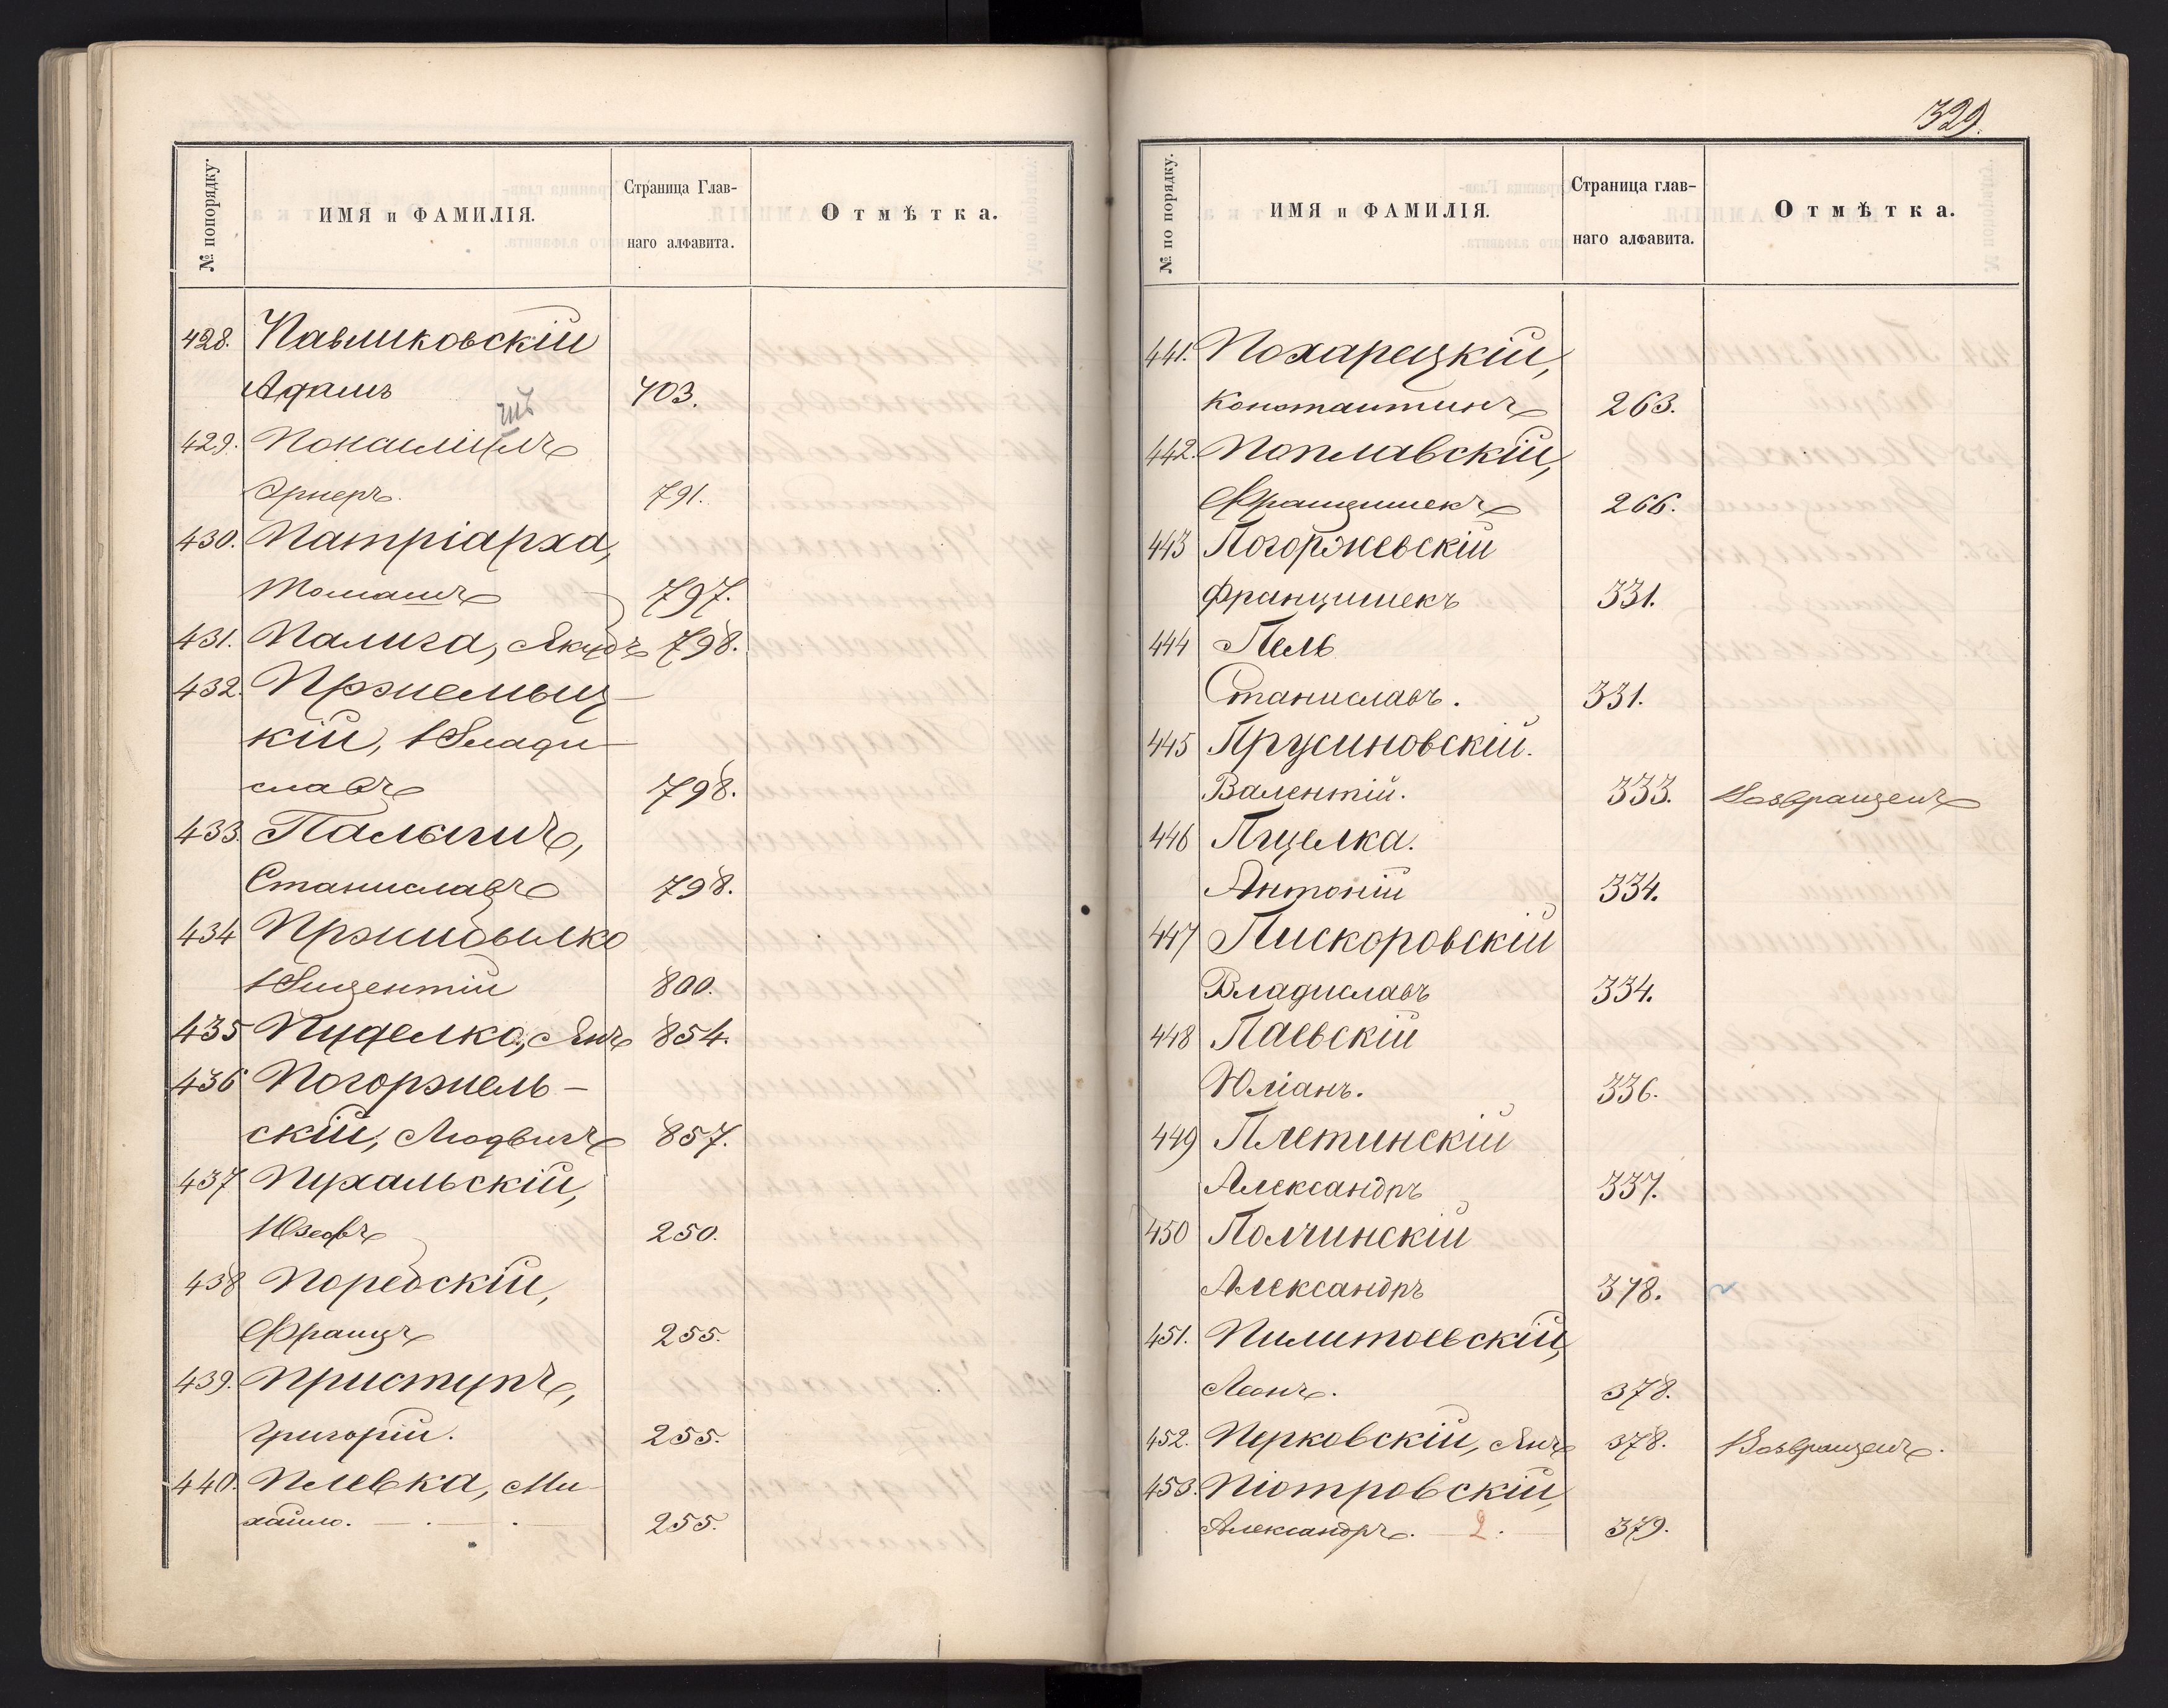 № попорядку.
ИМЯ и ФАМИЛІЯ.
Страница Глав-
наго алфавита.
Отмѣтка.
428. Павликовскій
Адамъ 703.
429.
Эрнеръ. 791.
430. Патріарха,
Томашъ 797.
431. Палига, Якубъ 798.
432. Пржемыц-
кій, Влади-
славъ 798.
433. Пальгигъ,
Станиславъ 798.
434 Пржибылко
Вицентій 800.
435 Пуделко, Янъ 854.
436 Погоржель-
скій, Людвигъ 857.
437 Пухальскій,
Юзефъ 250.
438 Порембскій,
Францъ 255.
439. Приступъ,
Григорій. 255.
440. Плевка, Ми-
хайло. 255.
329.
№ по порядку.
ИМЯ и ФАМИЛІЯ.
Страница глав-
наго алфавита.
Отмѣтка.
441. Похарецкій,
Константинъ 263.
442. Поплавскій,
Францишекъ 266.
443 Погоржевскій
Францишекъ 331.
444 Пель
Станиславъ. 331.
445 Прусиновскій.
Валентій. 333. Возвращенъ
446 Пщелка.
Антоній 334.
447 Пискоровскій
Владиславъ 334.
448 Паевскій
Юліанъ. 336.
449 Плетинскій
Александръ 337.
450 Полчинскій
Александръ 378.
451. Пилитовскій,
Леонъ. 378.
452. Перковскій, Янъ 378. Возвращенъ.
453. Піотровскій,
Александръ. 2. 379.